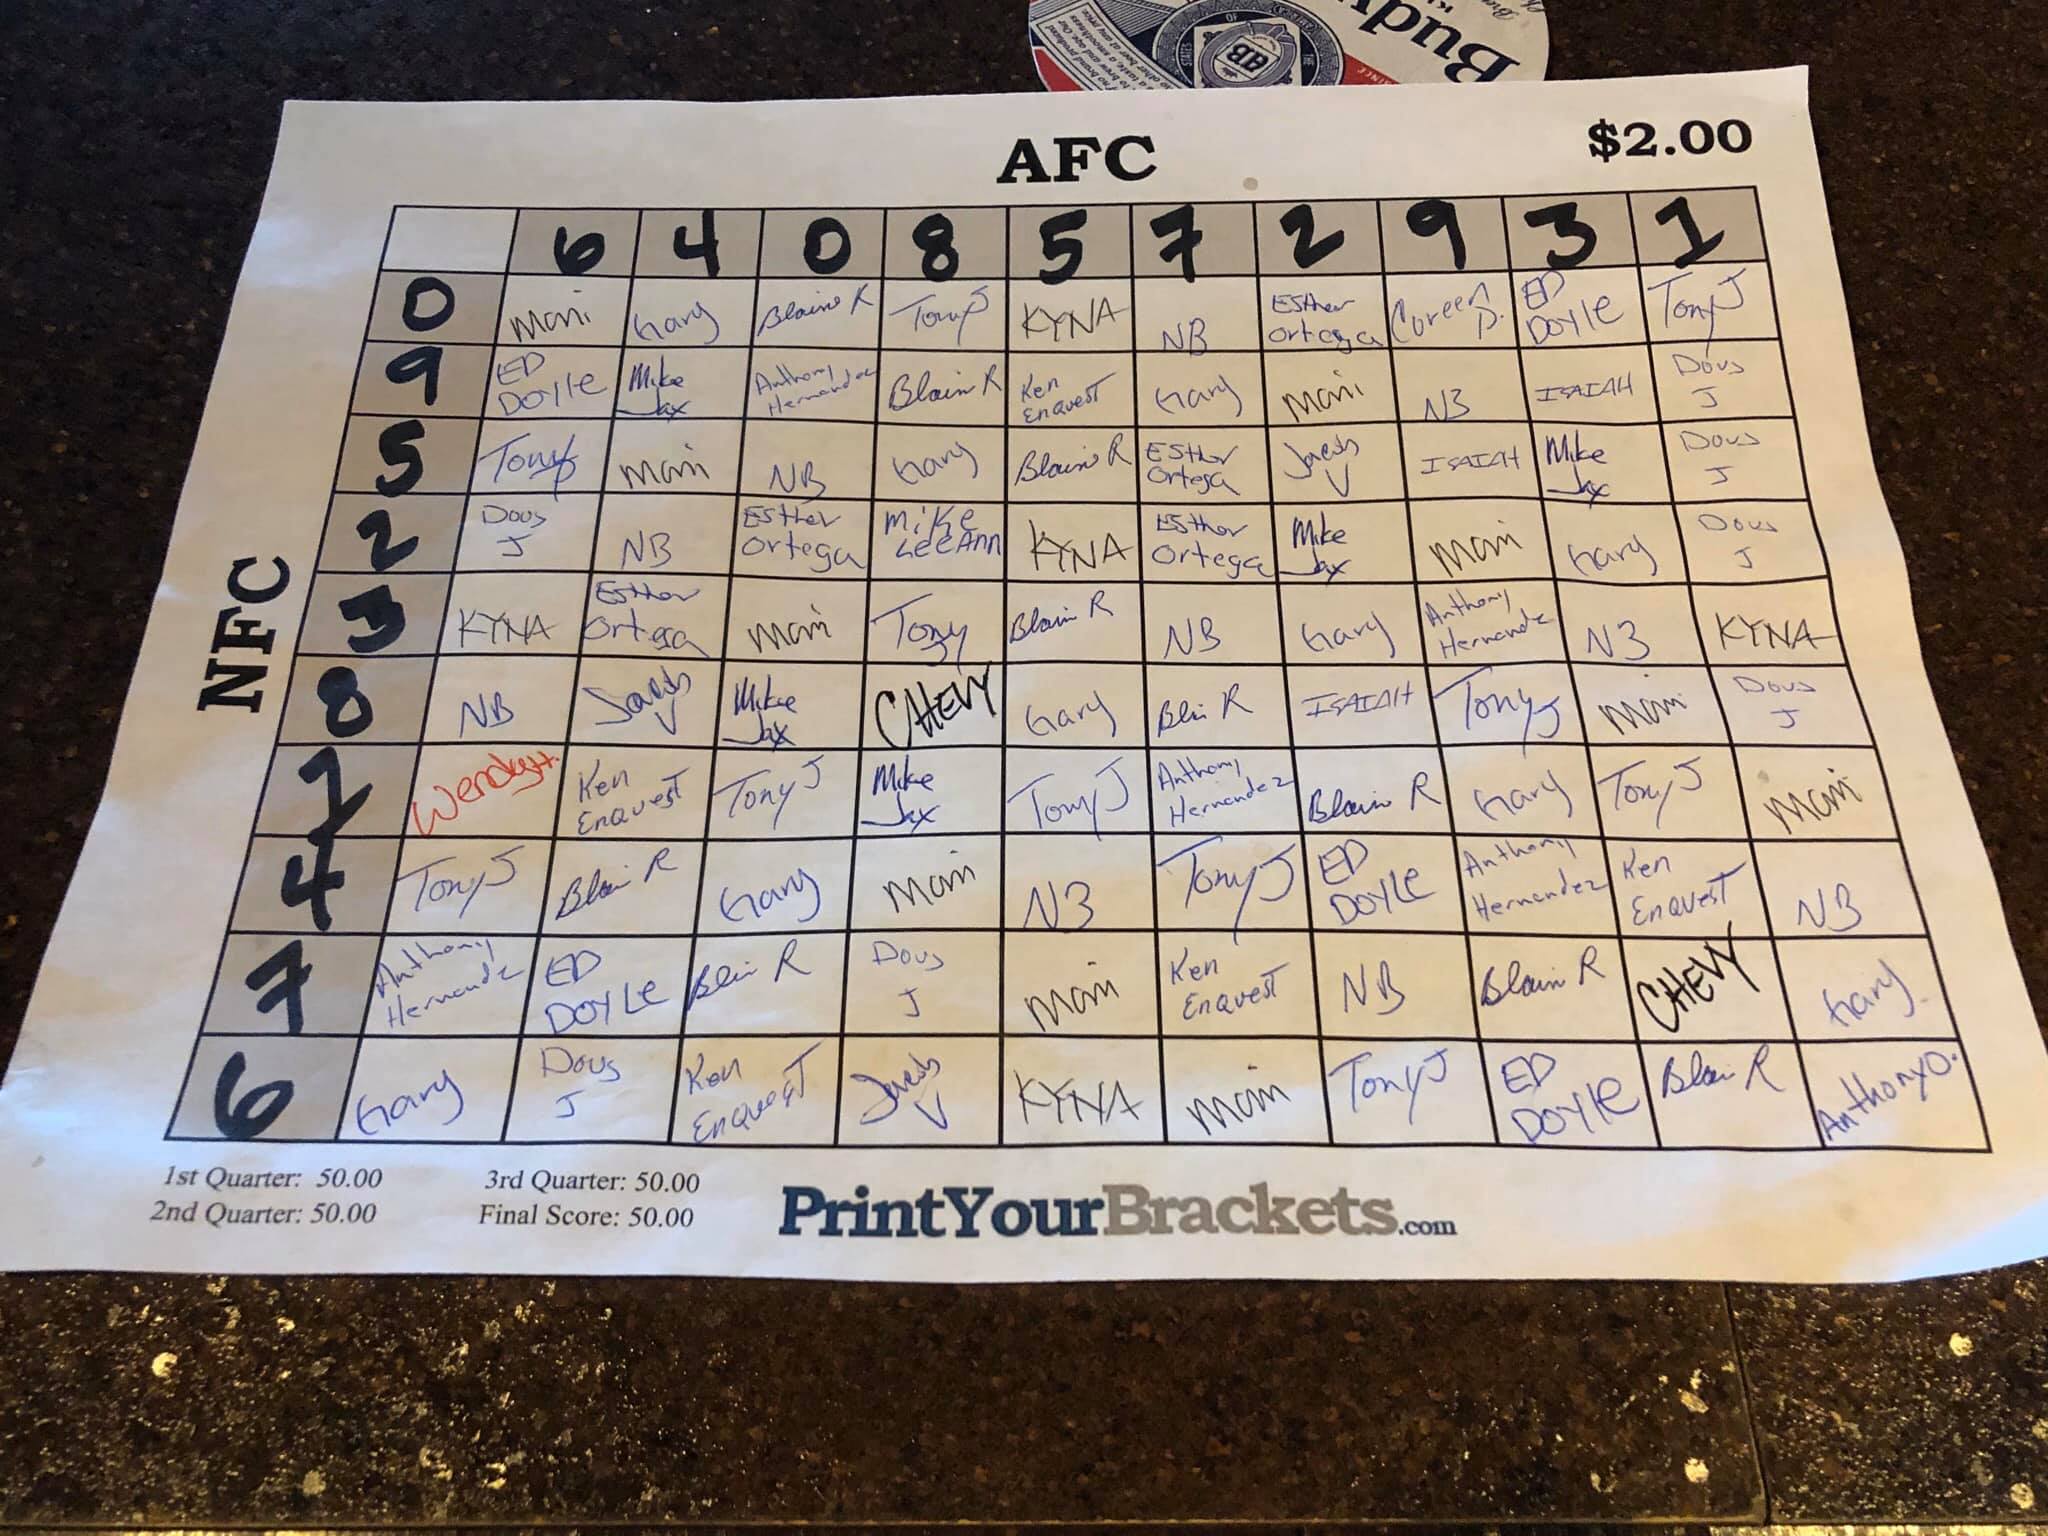 Budw
SINCE
OF
STATES
THE
AB
AFC
$2.00
6 4 0 8 5 7 2 9 3 1
NFC
0 Mani Gary Blaine R Tony J KYNA NB Esther Ortega Coreen D. ED DOYLE Tony J
9 ED DOYLE Mike Jax Anthony Hernandez Blain R Ken Enquest Gary Mani NB ISAIAH Doug J
5 Tony J Mani NB Gary Blain R Esther Ortega Jacob V ISAIAH Mike Jax Doug J
2 Doug J NB Esther Ortega Mike LeeAnn KYNA Esther Ortega Mike Jax Mani Gary Doug J
3 KYNA Esther Ortega Mani Tony J Blain R NB Gary Anthony Hernandez NB KYNA
8 NB Jacob V Mike Jax CHEVY Gary Blain R ISAIAH Tony J Mani Doug J
1 Wendy H. Ken Enquest Tony J Mike Jax Tony J Anthony Hernandez Blain R Gary Tony J Mani
4 Tony J Blain R Gary Mani NB Tony J ED DOYLE Anthony Hernandez Ken Enquest NB
7 Anthony Hernandez ED DOYLE Blain R Doug J Mani Ken Enquest NB Blain R CHEVY Gary
6 Gary Doug J Ken Enquest Jacob V KYNA Mani Tony J ED DOYLE Blain R Anthony D.
1st Quarter: 50.00 3rd Quarter: 50.00
2nd Quarter: 50.00 Final Score: 50.00
PrintYourBrackets.com